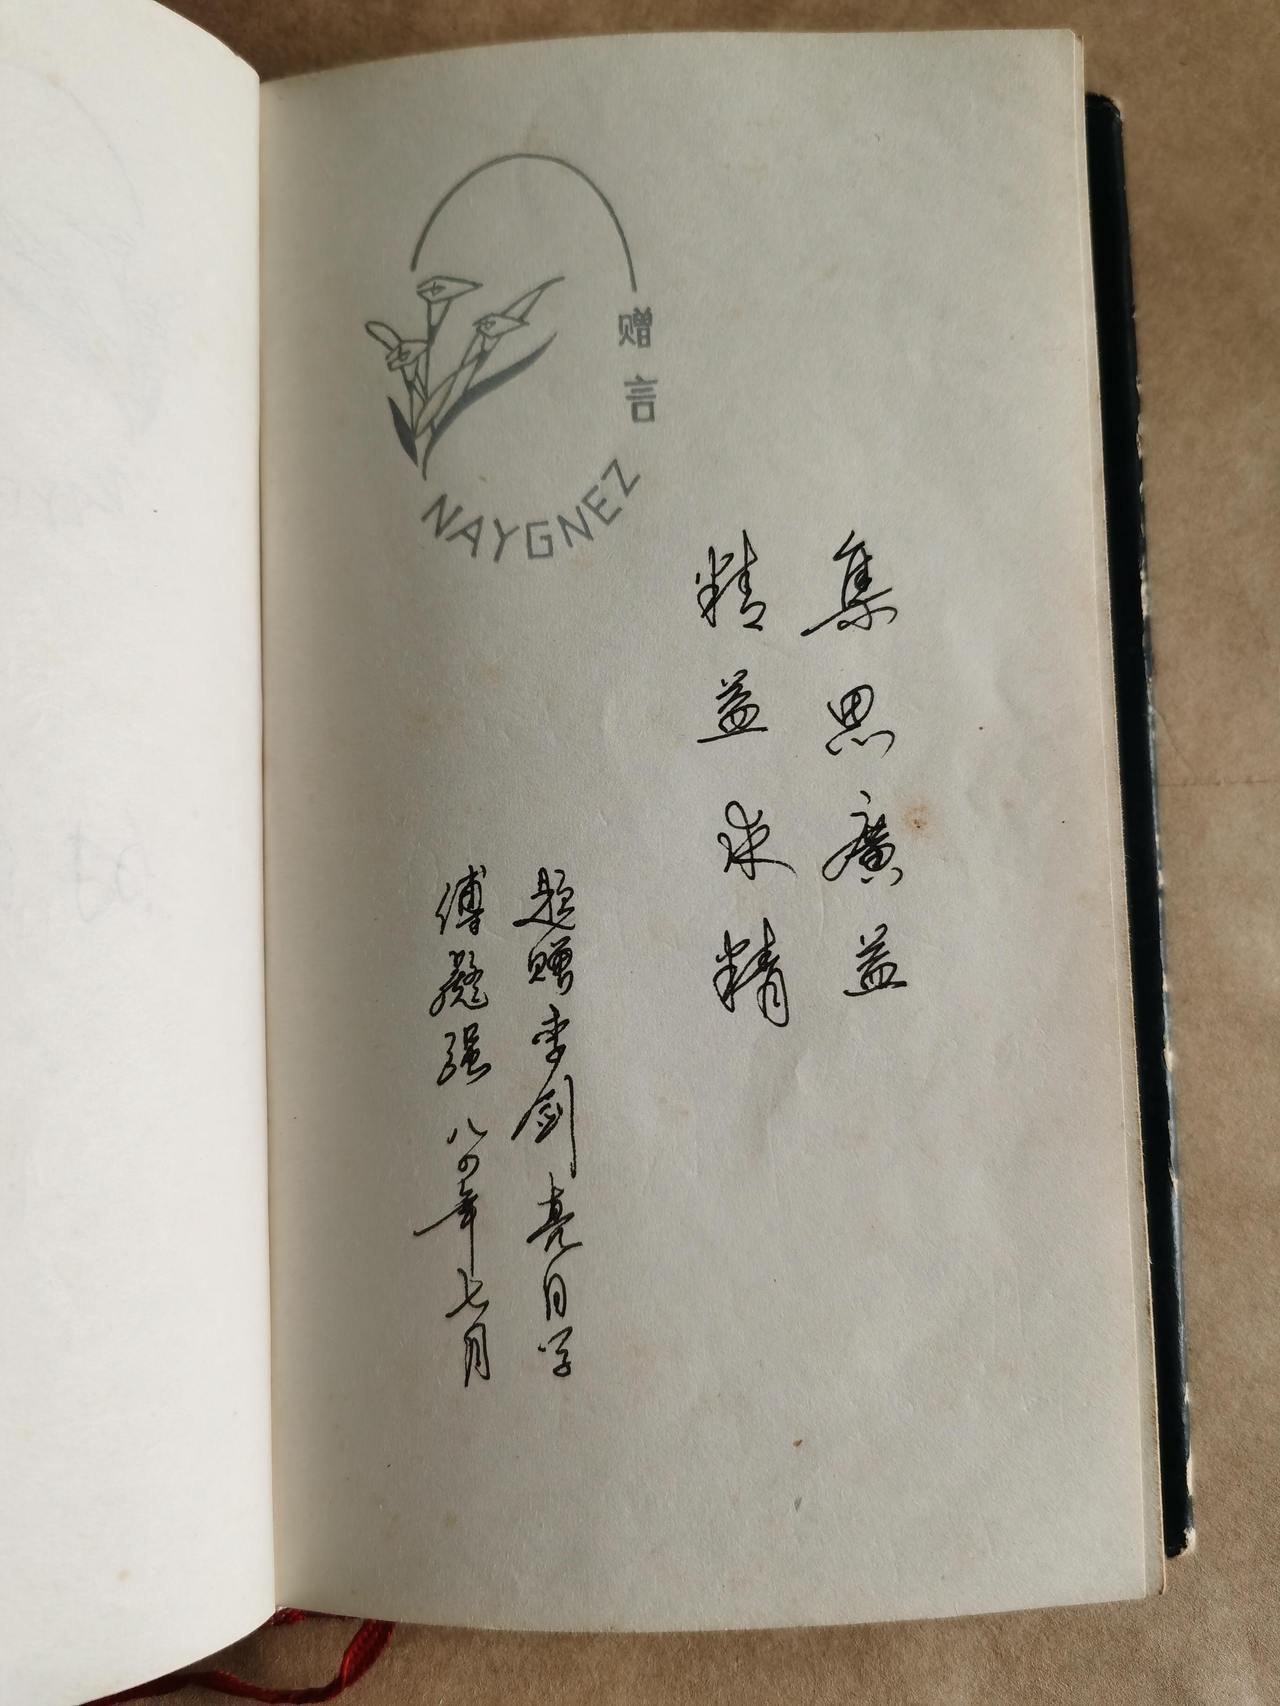 赠言
NAYGNEZ
集思廣益
精益求精
题赠李剑亮同学
傅凝强 八四年七月